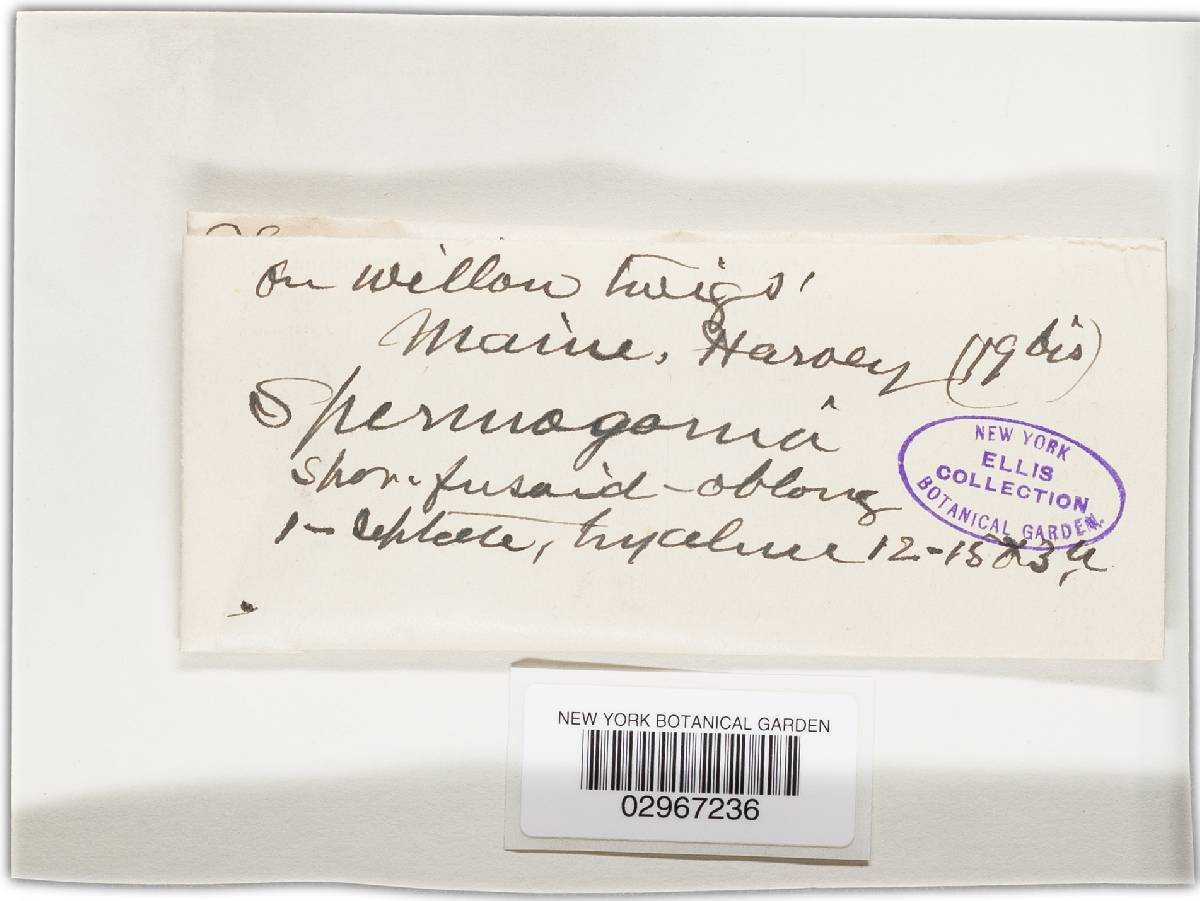 on willow twigs'
Maine. Harvey (19 bis)
Spermogonia
Spor. fusoid-oblong
1-septate, hyaline 12-15 x 3 µ
NEW YORK
ELLIS
COLLECTION
BOTANICAL GARDEN.
NEW YORK BOTANICAL GARDEN
02967236